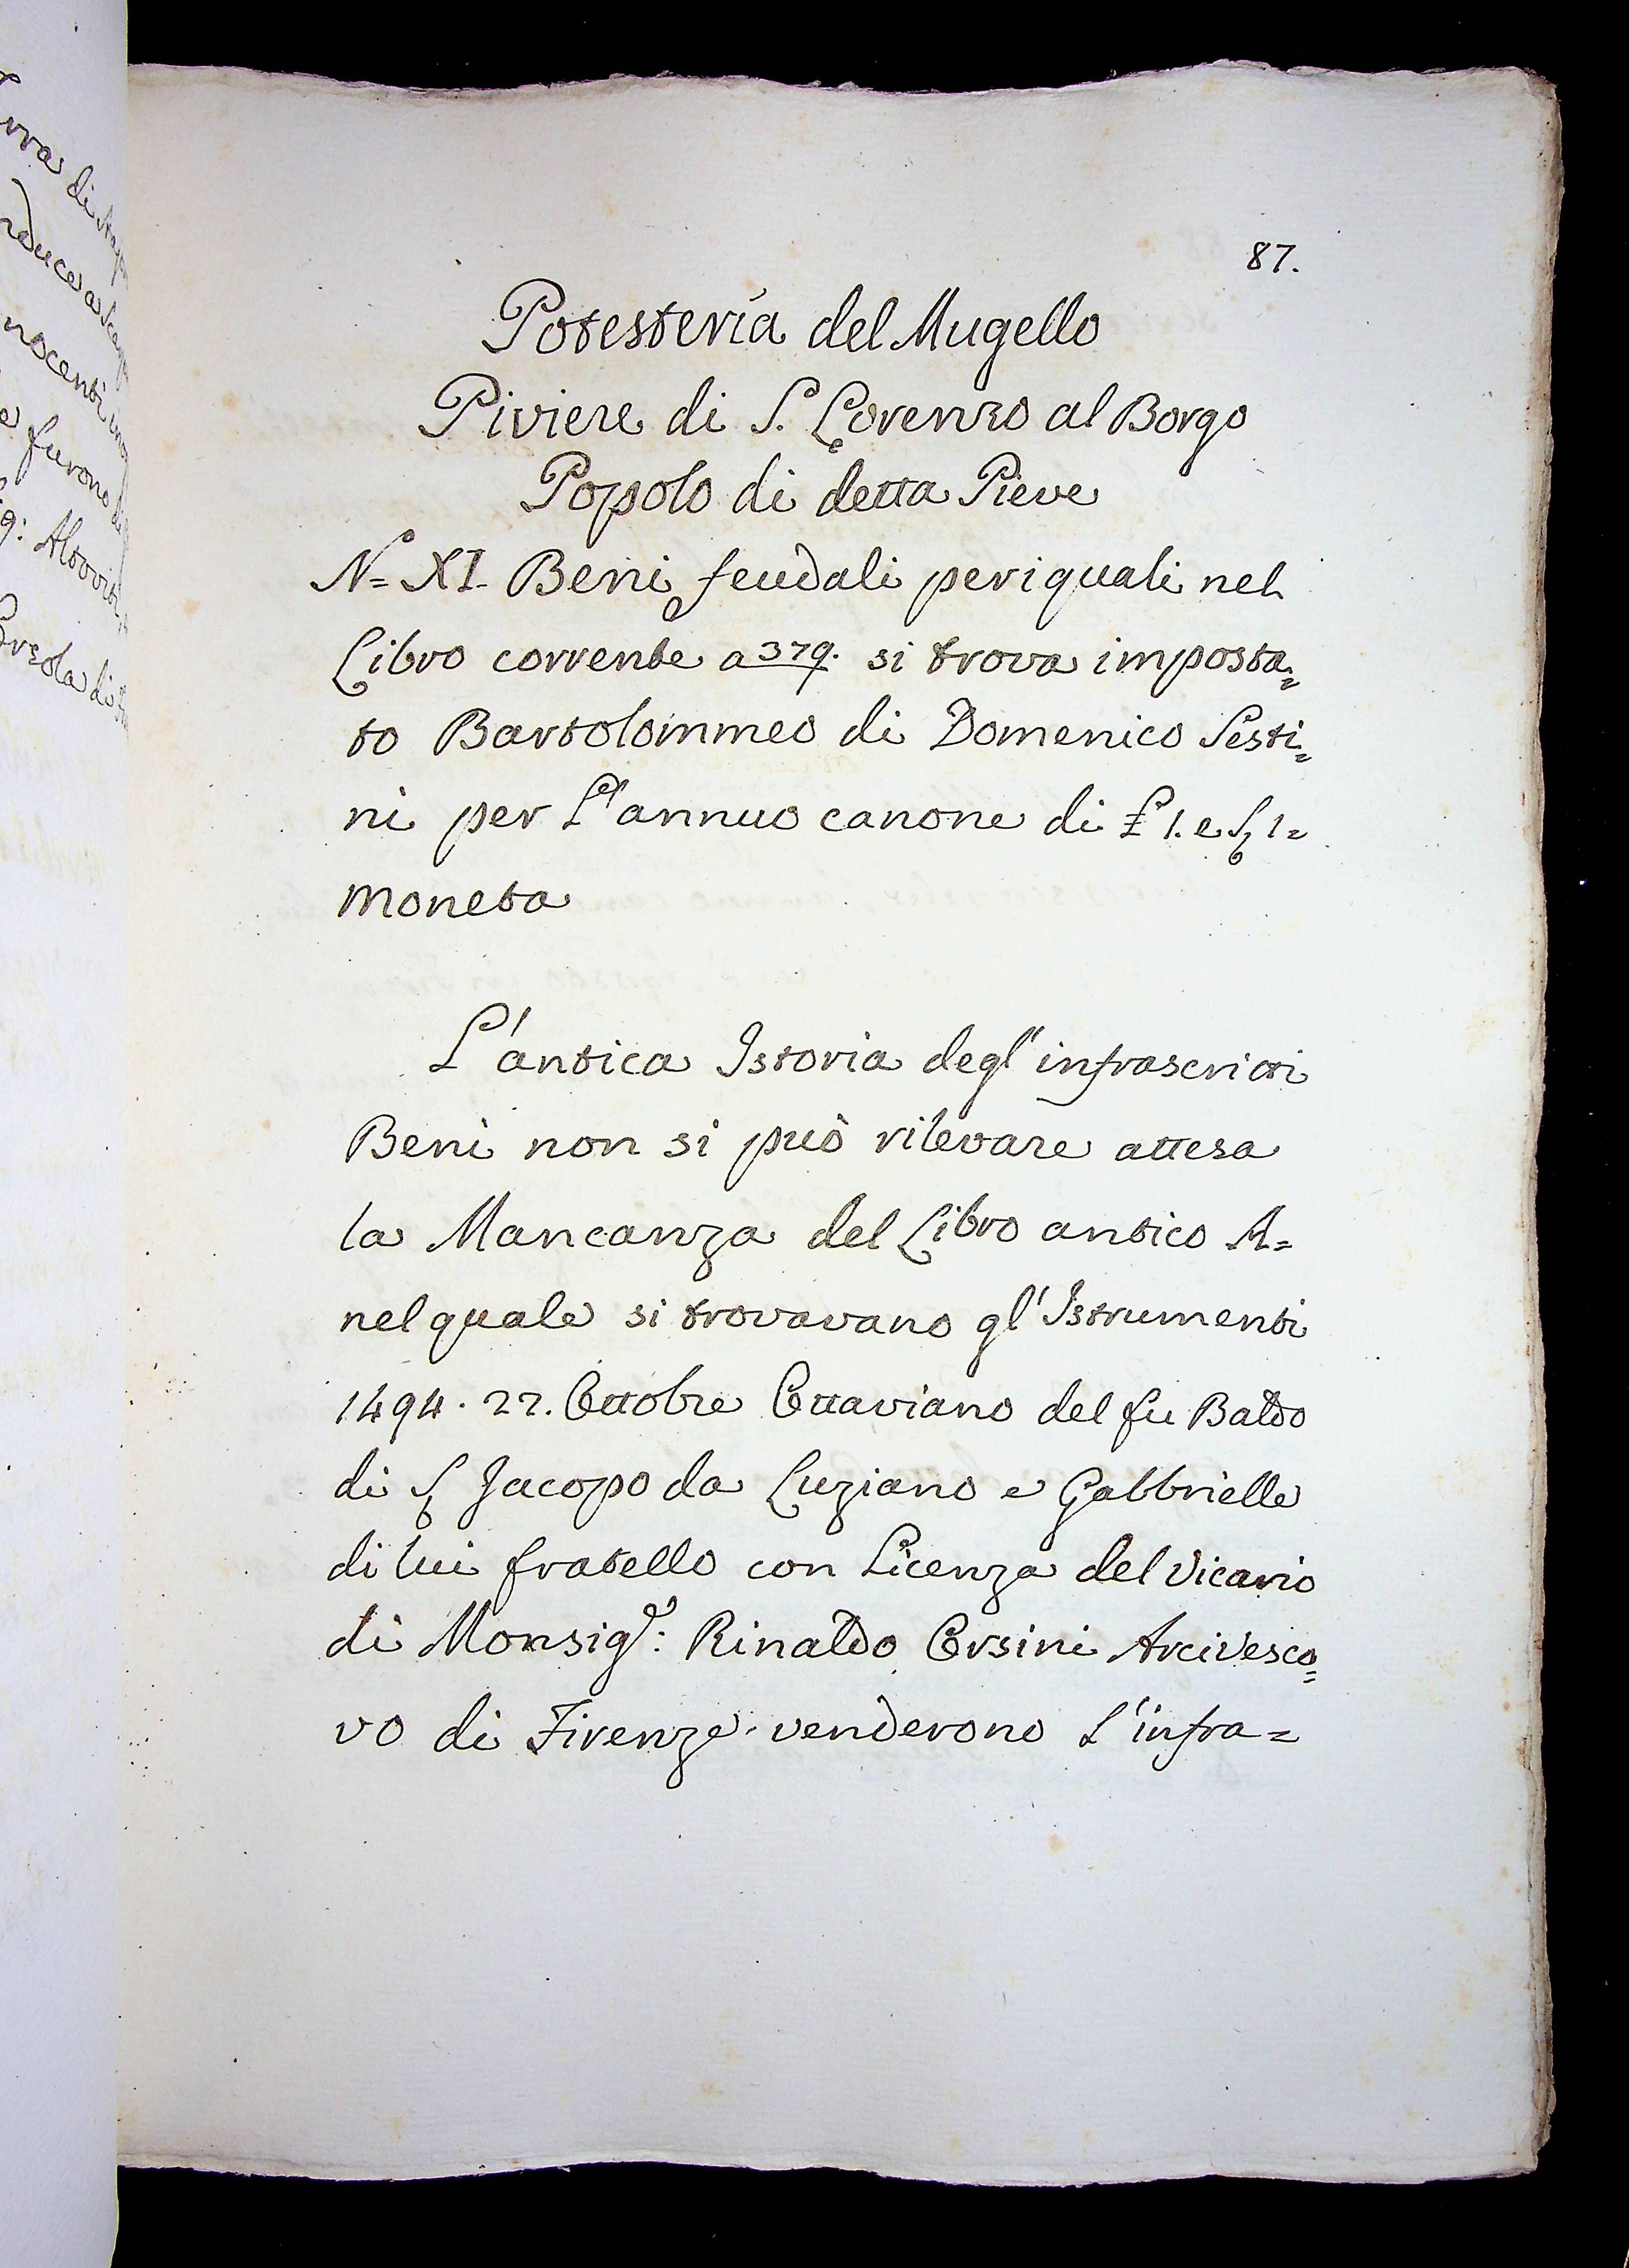 87.
Potesterìa del Mugello
Piviere di S. Lorenzo al Borgo
Popolo di detta Pieve
N.o= XI- Beni feudali per i quali nel
Libro corrente a 379. si trova imposta=
to Bartolommeo di Domenico Sesti=
ni per L'annuo canone di £ 1. e S. 1=
moneta
L'antica Istoria degl' infrascritti
Beni non si può rilevare attesa
la Mancanza del Libro antico A=
nel quale si trovavano gl' Istrumenti
1494. 22. Ottobre Ottaviano del fu Baldo
di S. Jacopo da Luziano e Gabbrielle
di lui fratello con Licenza del Vicario
di Monsig.r: Rinaldo Orsini Arcivesco=
vo di Firenze venderono L'infra=
rra di
nocenti
e furono
g: Altoviti